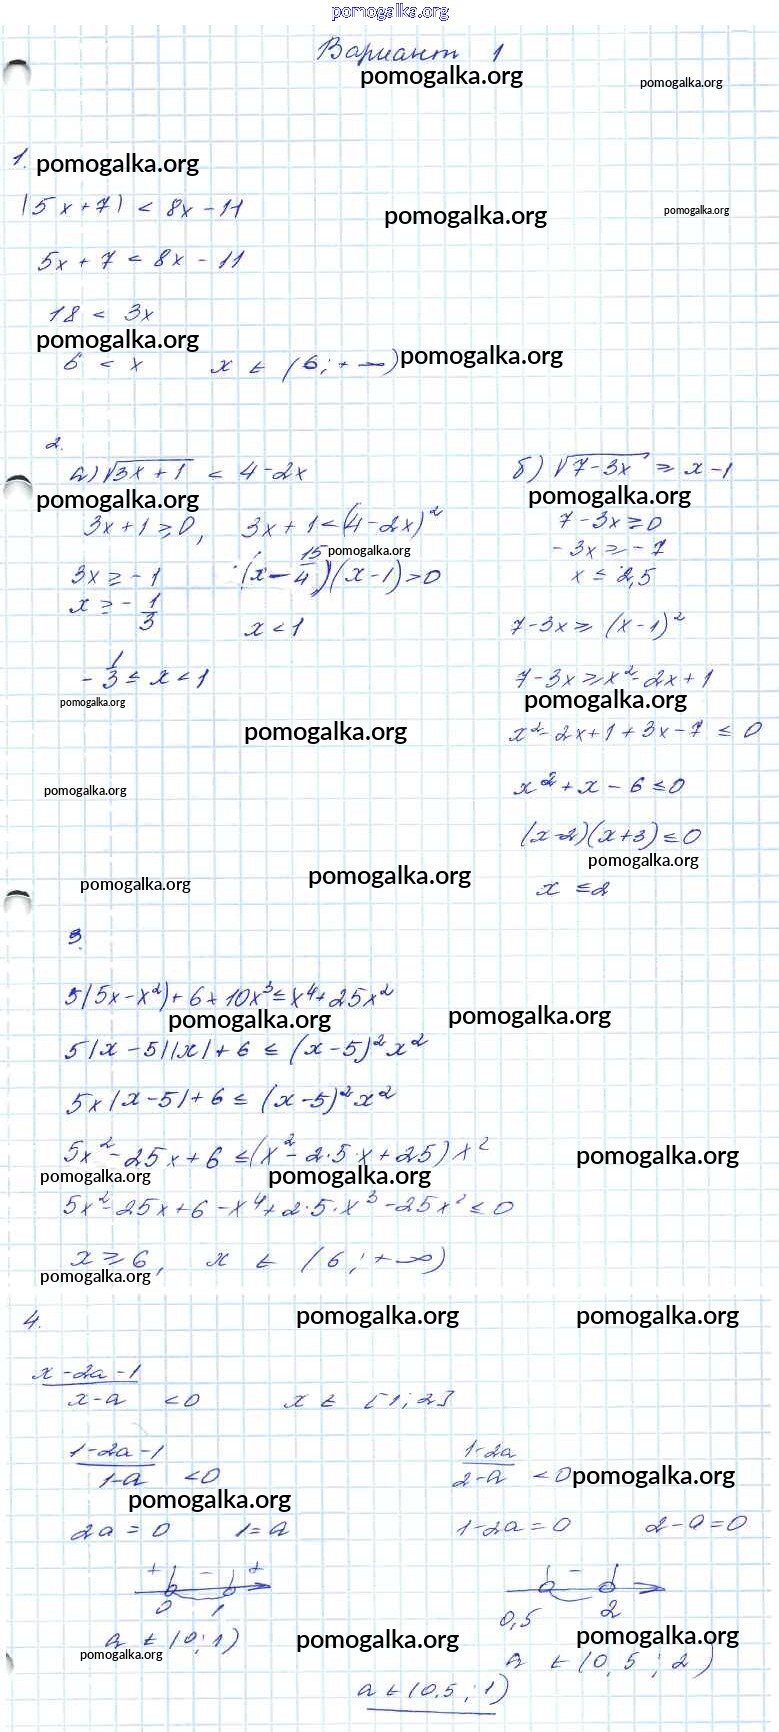 pomogalka.org
Вариант 1
pomogalka.org pomogalka.org
1. pomogalka.org
|5x+7| < 8x-11
pomogalka.org pomogalka.org
5x + 7 < 8x - 11
18 < 3x
pomogalka.org
6 < x x ∈ (6; +∞) pomogalka.org
2.
а) √3x+1 < 4-2x
pomogalka.org
3x+1 ≥ 0, 3x+1 < (4-2x)²
pomogalka.org
3x ≥ -1 (x - 15/4)(x-1) > 0
x ≥ - 1/3
x < 1
- 1/3 ≤ x < 1
pomogalka.org
pomogalka.org
pomogalka.org
б) √7-3x ≥ x-1
pomogalka.org
7-3x ≥ 0
-3x ≥ -7
x ≤ 2,5
7-3x ≥ (x-1)²
7-3x ≥ x²-2x+1
pomogalka.org
x²-2x+1+3x-7 ≤ 0
x²+x-6 ≤ 0
(x-2)(x+3) ≤ 0
pomogalka.org
x ≤ 2
pomogalka.org pomogalka.org
3.
5|5x-x²|+6+10x³ ≤ x⁴+25x²
pomogalka.org pomogalka.org
5|x-5||x|+6 ≤ (x-5)²x²
5x|x-5|+6 ≤ (x-5)²x²
5x²-25x+6 ≤ (x²-2·5·x+25)x²
pomogalka.org pomogalka.org pomogalka.org
5x²-25x+6-x⁴+2·5·x³-25x² ≤ 0
x ≥ 6, x ∈ (6; +∞)
pomogalka.org
4. pomogalka.org pomogalka.org
x-2a-1
x-a < 0 x ∈ [1; 2]
1-2a-1
1-a < 0
pomogalka.org
2a = 0 1 = a
+ - +
0 1
a ∈ (0; 1)
pomogalka.org
1-2a
2-a < 0 pomogalka.org
1-2a = 0 2-a = 0
-
0,5 2
pomogalka.org pomogalka.org
a ∈ (0,5; 2)
a ∈ (0,5; 1)